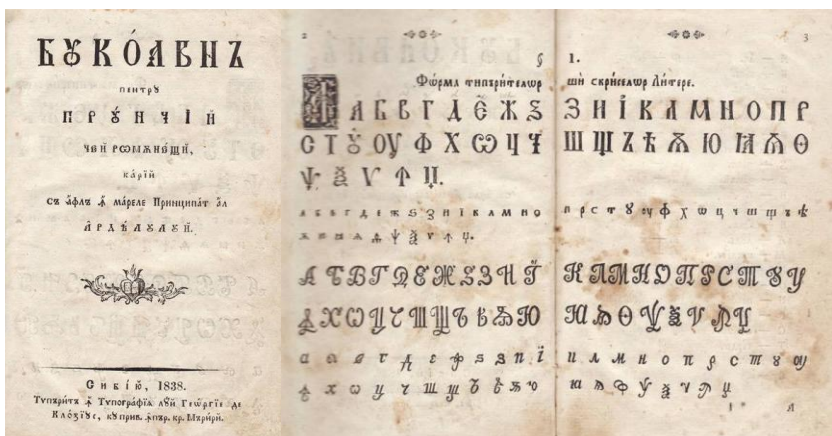 БꙊКО́АВНЪ
пентрꙋ
ПРꙊ́НЧІЙ
чей рѡмѫнещй,
карїй
съ а́флъ ꙟ ма́реле Принципа́т ал
А҆рдѣ́лꙋлꙋй.
Сибїю, 1838.
Тѵпъри́тъ ꙟ Тѵпогра́фїа лꙋй Геѡ́ргїе де
Кло́зїꙋс, кꙋ прив. ꙟпър. кр. Мъри́рй.
2
§
Фо́рма типъри́телѡр
А Б В Г Д Е Ж Ѕ
С Т Ꙋ ОУ Ф Х Ѡ Ц Ч
Ѱ Ѯ Ѵ Ꙟ Џ.
а б в г д е ж ѕ з н і к л м н о
Ѱ Ѯ Ѵ ꙟ џ.
А Б В Г Д Е Ж Ѕ З И Ї
Х Ѡ Ц Ч Ш Щ Ъ Ѣ Ѫ Ю
3
1.
шй скри́селѡр Ли́тере.
З И І К Л М Н О П Р
Ш Щ Ъ Ѣ Ѫ Ю Ꙗ Ѧ Ѳ
п р с т ꙋ оу ф х ѡ ц ч ш щ ъ ѣ
К Л М Н О П Р С Т Ꙋ У
Ꙗ Ѧ Ѳ Ѱ Ѯ Ѵ Ꙟ Џ
к л м н о п р с т ꙋ оу